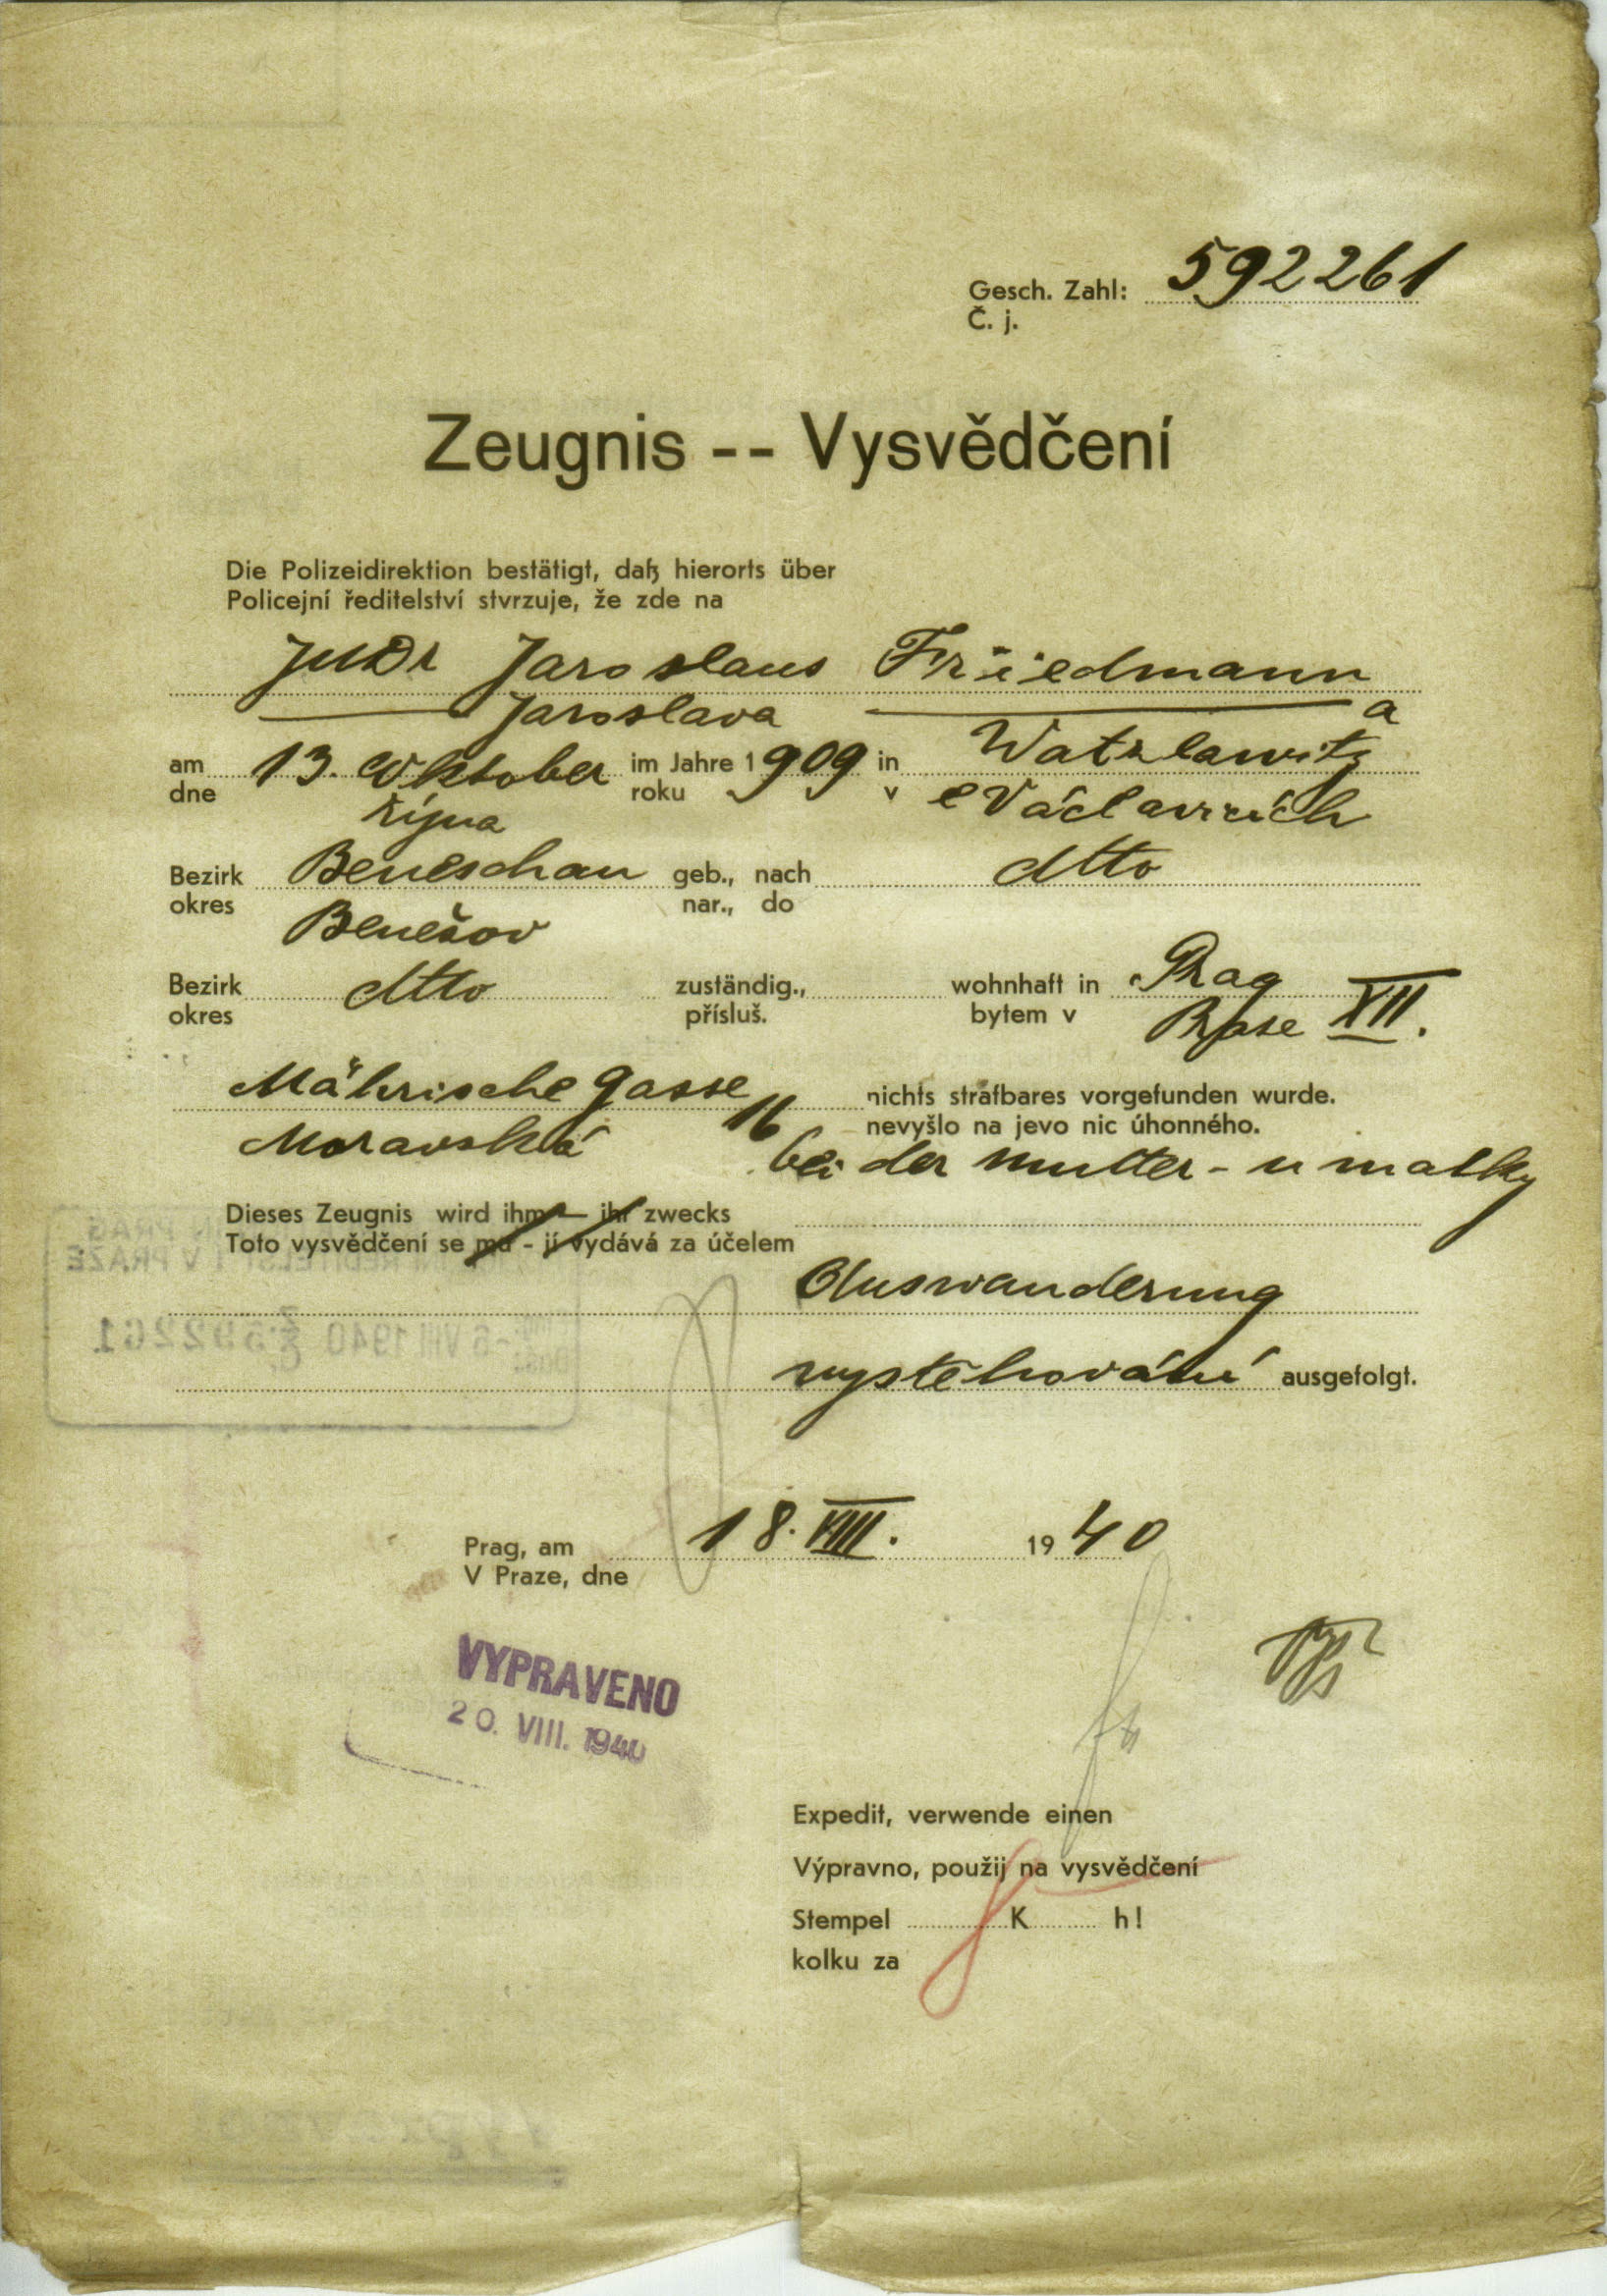 Gesch. Zahl: 592261
Č. j.
Zeugnis -- Vysvědčení
Die Polizeidirektion bestätigt, daß hierorts über
Policejní ředitelství stvrzuje, že zde na
JUDr Jaroslaus Friedmann
Jaroslava a
am 13. Oktober im Jahre 1909 in Watzlawitz
dne října roku v Václavicích
Bezirk Beneschau geb., nach dtto
okres Benešov nar., do
Bezirk dtto zuständig., wohnhaft in Prag
okres přísluš. bytem v Praze XII.
Mährische gasse nichts strafbares vorgefunden wurde.
Moravská 16 nevyšlo na jevo nic úhonného.
bei der mutter - u matky
Dieses Zeugnis wird ihm — ihr zwecks
Toto vysvědčení se mu - jí vydává za účelem
Auswanderung
vystěhování ausgefolgt.
Prag, am 18. VIII. 1940
V Praze, dne
VYPRAVENO
20. VIII. 1940
Expedit, verwende einen
Výpravno, použij na vysvědčení
Stempel K h!
kolku za